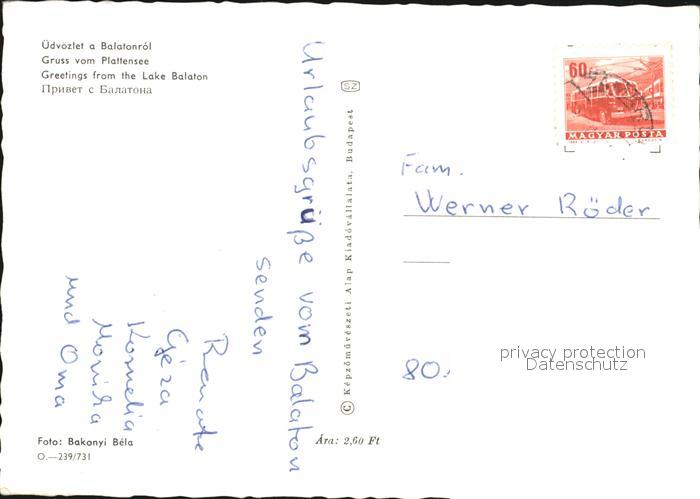 Üdvözlet a Balatonról
Gruss vom Plattensee
Greetings from the Lake Balaton
Привет с Балатона
Urlaubsgrüße vom Balaton
senden
Renate
Géza
Kornelia
Monika
und Oma
Foto: Bakonyi Béla
O.—239/731
SZ
© Képzőművészeti Alap Kiadóvállalata, Budapest
Ára: 2,60 Ft
60f
MAGYAR POSTA
Fam.
Werner Röder
80.
privacy protection
Datenschutz